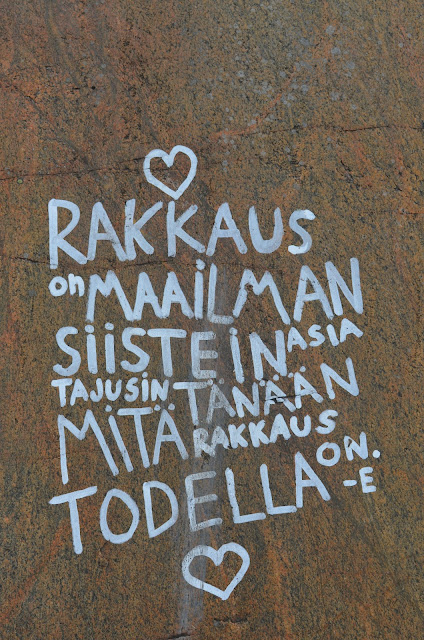 RAKKAUS
on MAAILMAN
SIISTEIN ASIA
TAJUSIN TÄNÄÄN
MITÄ RAKKAUS
TODELLA ON.
-E